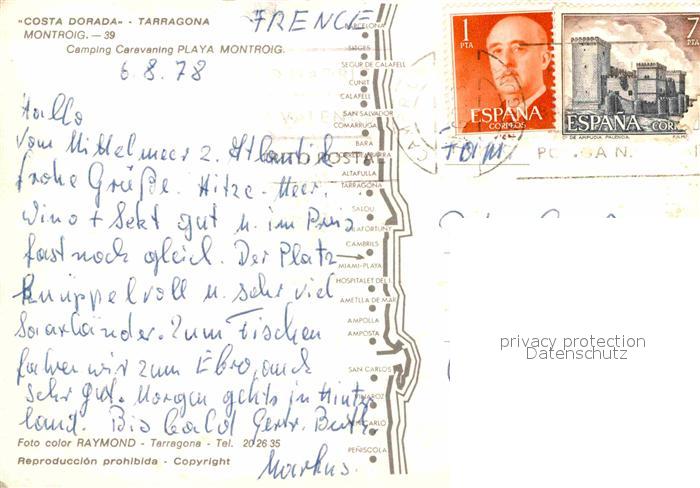 "COSTA DORADA" - TARRAGONA
MONTROIG. — 39
Camping Caravaning PLAYA MONTROIG.
6.8.78
Hallo
Vom Mittelmeer z. Atlantik
frohe Grüße. Hitze. Meer.
Wino + Sekt gut u. im Preis
fast noch gleich. Der Platz
knüppelvoll u. sehr viel
Saarländer. Zum Fischen
fahren wir zum Ebro, auch
sehr gut. Morgen gehts in Hinter
land. Bis bald Gertr. Berth.
Markus.
Foto color RAYMOND - Tarragona - Tel. 20 26 35
Reproducción prohibida - Copyright
BARCELONA
SITGES
SEGUR DE CALAFELL
CUNIT
CALAFELL
SAN SALVADOR
COMARRUGA
BARA
ALTAFULLA
TARRAGONA
SALOU
CAMBRILS
MIAMI-PLAYA
HOSPITALET DEL I.
AMETLLA DE MAR
AMPOLLA
AMPOSTA
SAN CARLOS
PEÑISCOLA
1
PTA
ESPAÑA
CORREOS
7
ESPAÑA
COR
DE AMPUDIA PALENCIA
privacy protection
Datenschutz